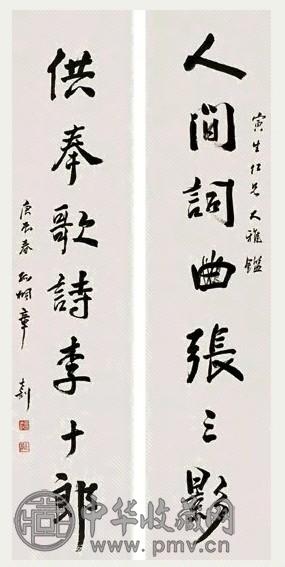 寅生仁兄大雅鑑
人間詞曲張三影
供奉歌詩李十郎
庚辰春 孤桐章士釗
中华收藏网
www.pmv.cn